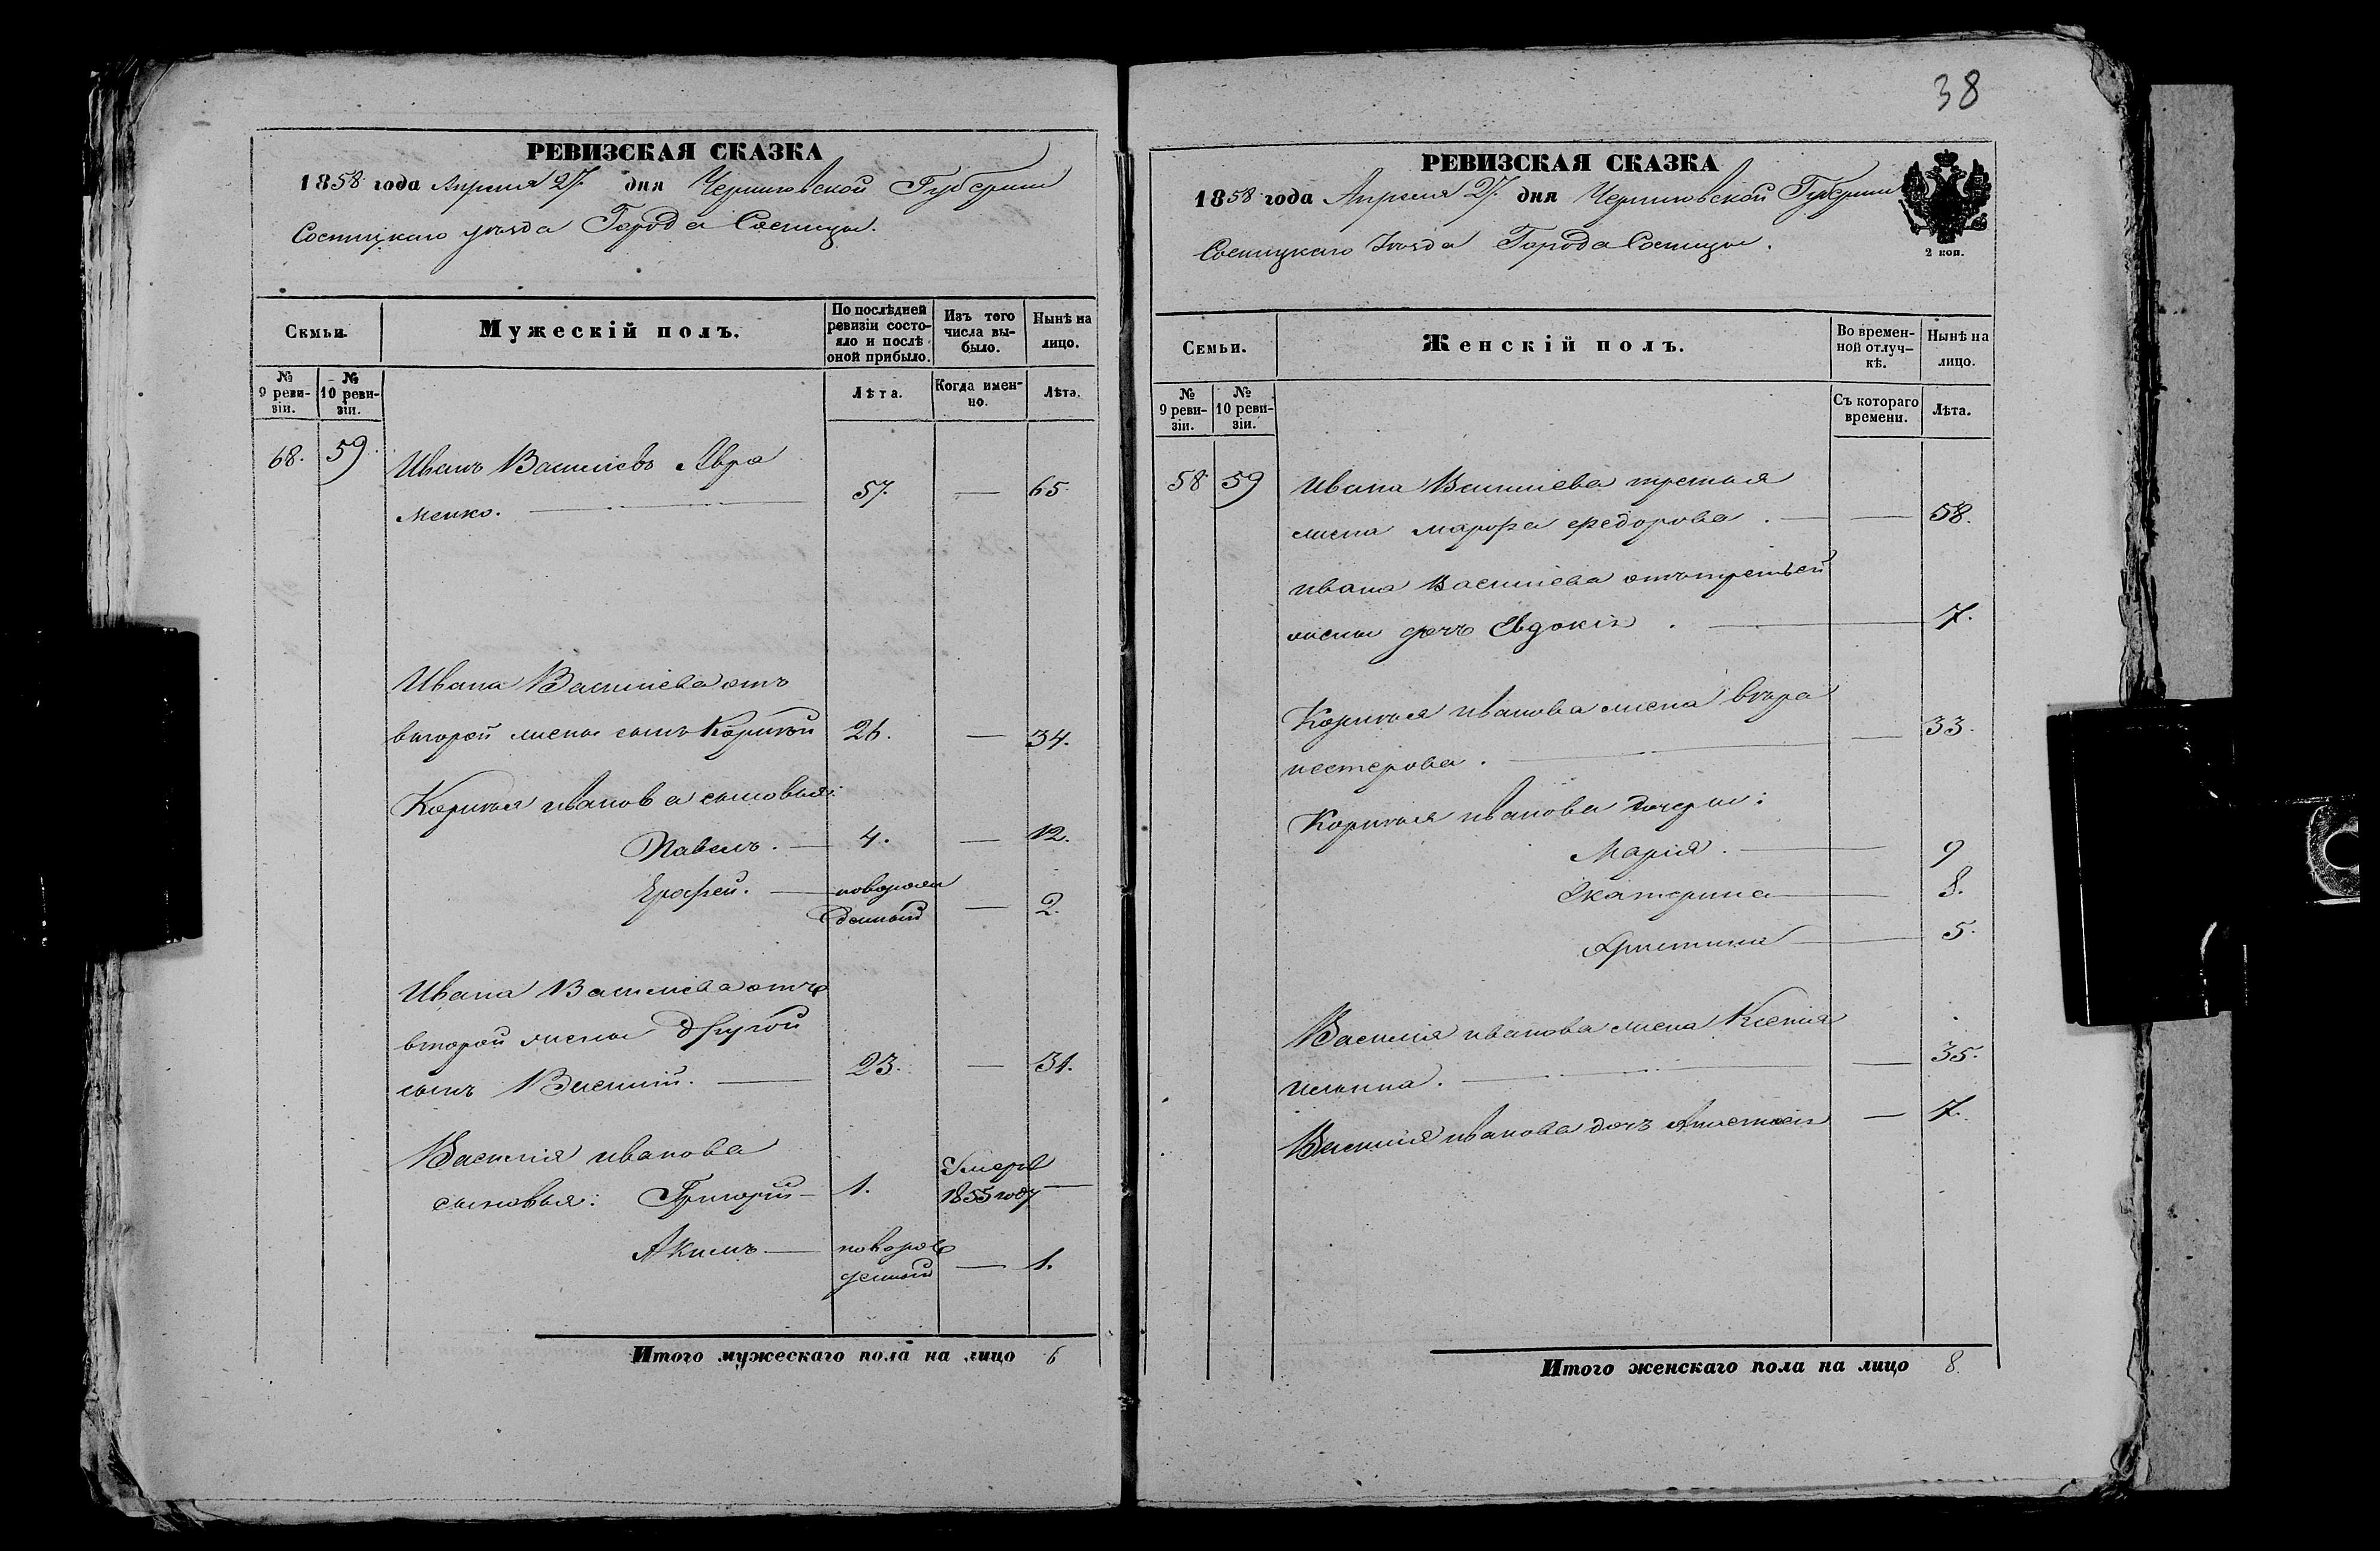 РЕВИЗСКАЯ СКАЗКА
1858 года Апреля 27. дня Черниговской Губернии
Сосницкаго уезда Города Сосницы.
Семьи.
Мужескій полъ.
По послѣдней ревизіи состояло и послѣ оной прибыло.
Изъ того числа выбыло.
Нынѣ на лицо.
№ 9 ревизіи.
№ 10 ревизіи.
Лѣта.
Когда именно.
Лѣта.
68. 59. Иванъ Василіевъ Авра
менко. 57. — 65.
Ивана Василіева отъ
второй жены сынъ Корнѣй 26. — 34.
Корнѣя иванова сыновья:
Павелъ. — 4. — 12.
Ерофей. — новорож
денный — 2.
Ивана Василіева отъ
второй жены другой
сынъ Василій. — 23. — 31.
Василія иванова
сыновья: Григорій — 1. Умеръ 1855 году —
Акимъ — новорож
денный — 1.
Итого мужескаго пола на лицо 6
38
РЕВИЗСКАЯ СКАЗКА
1858 года Апреля 27. дня Черниговской Губернии
Сосницкаго Уезда Города Сосницы.
2 коп.
Семьи.
Женскій полъ.
Во временной отлучкѣ.
Нынѣ на лицо.
№ 9 ревизіи.
№ 10 ревизіи.
Съ котораго времени.
Лѣта.
58 59 Ивана Василіева третья
жена марфа федорова. — — 58.
ивана Василіева отъ третьей
жены дочъ Евдокія. — 7.
Корнѣя иванова жена вѣра
нестерова. — — 33.
Корнѣя иванова дочери:
Марія. — 9
Екатерина — 8.
Христина — 5.
Василія иванова жена Ксенія
ильина. — — 35.
Василія иванова дочъ Анастасія — 7.
Итого женскаго пола на лицо 8.